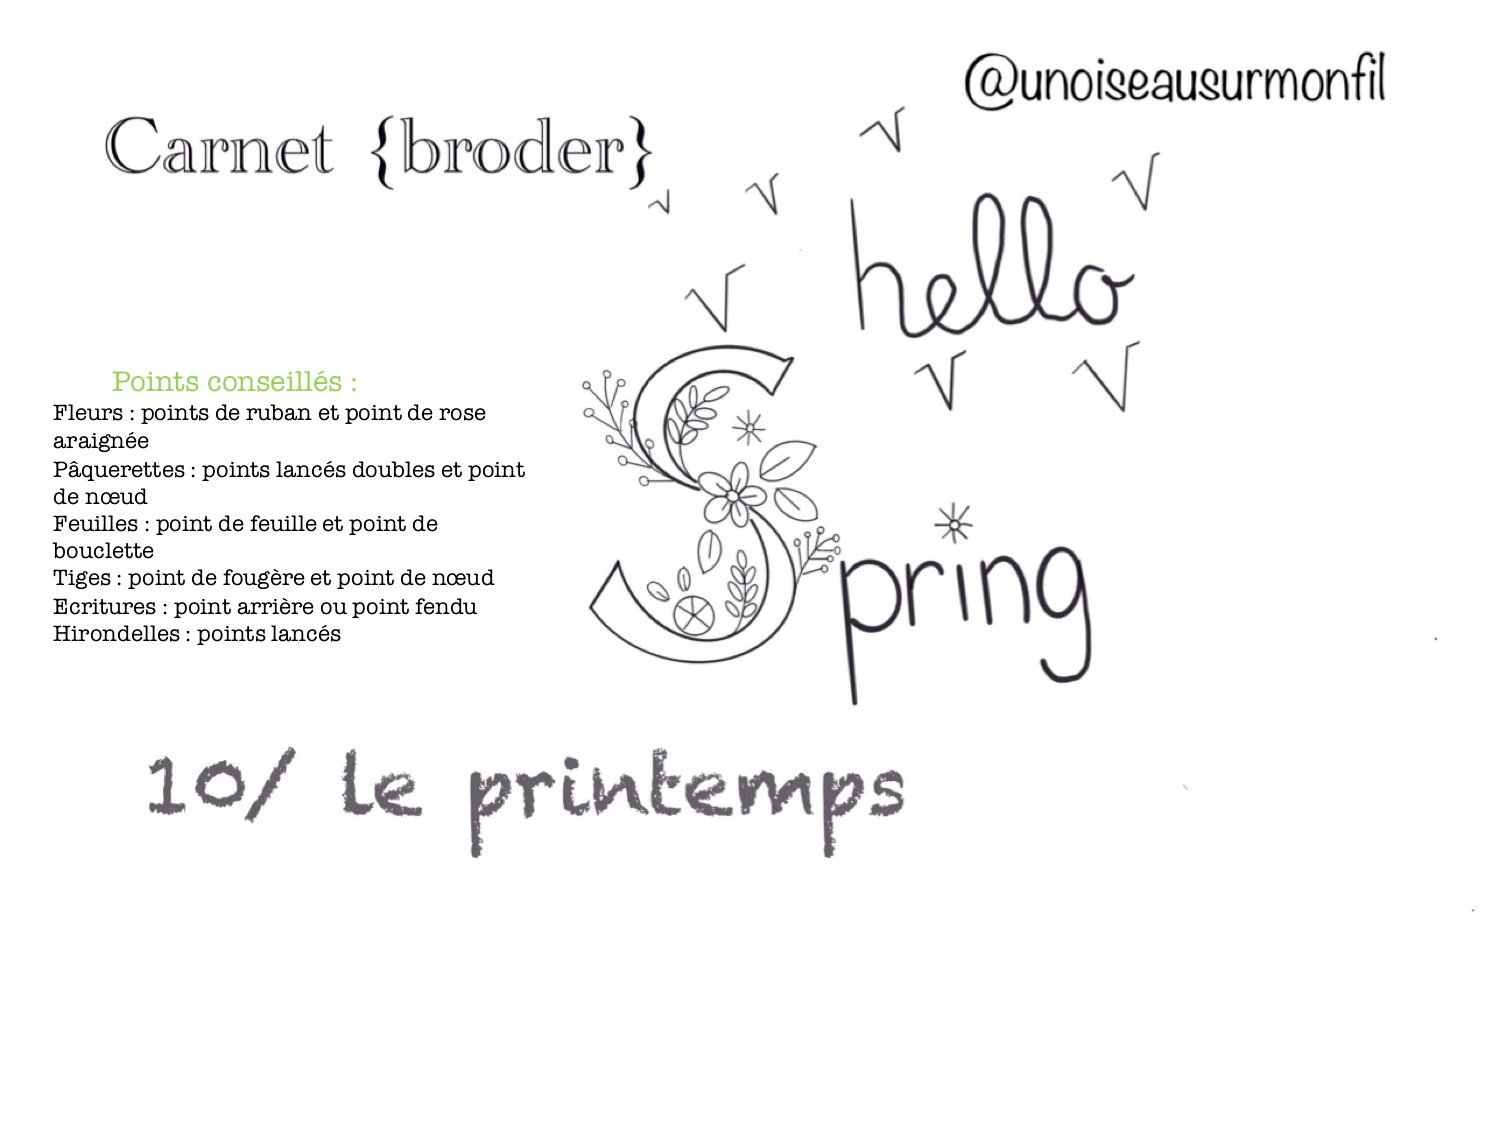 @unoiseausurmonfil
Carnet {broder}
hello
Points conseillés :
Fleurs : points de ruban et point de rose
araignée
Pâquerettes : points lancés doubles et point
de nœud
Feuilles : point de feuille et point de
bouclette
Tiges : point de fougère et point de nœud
Ecritures : point arrière ou point fendu
Hirondelles : points lancés
Spring
10/ le printemps